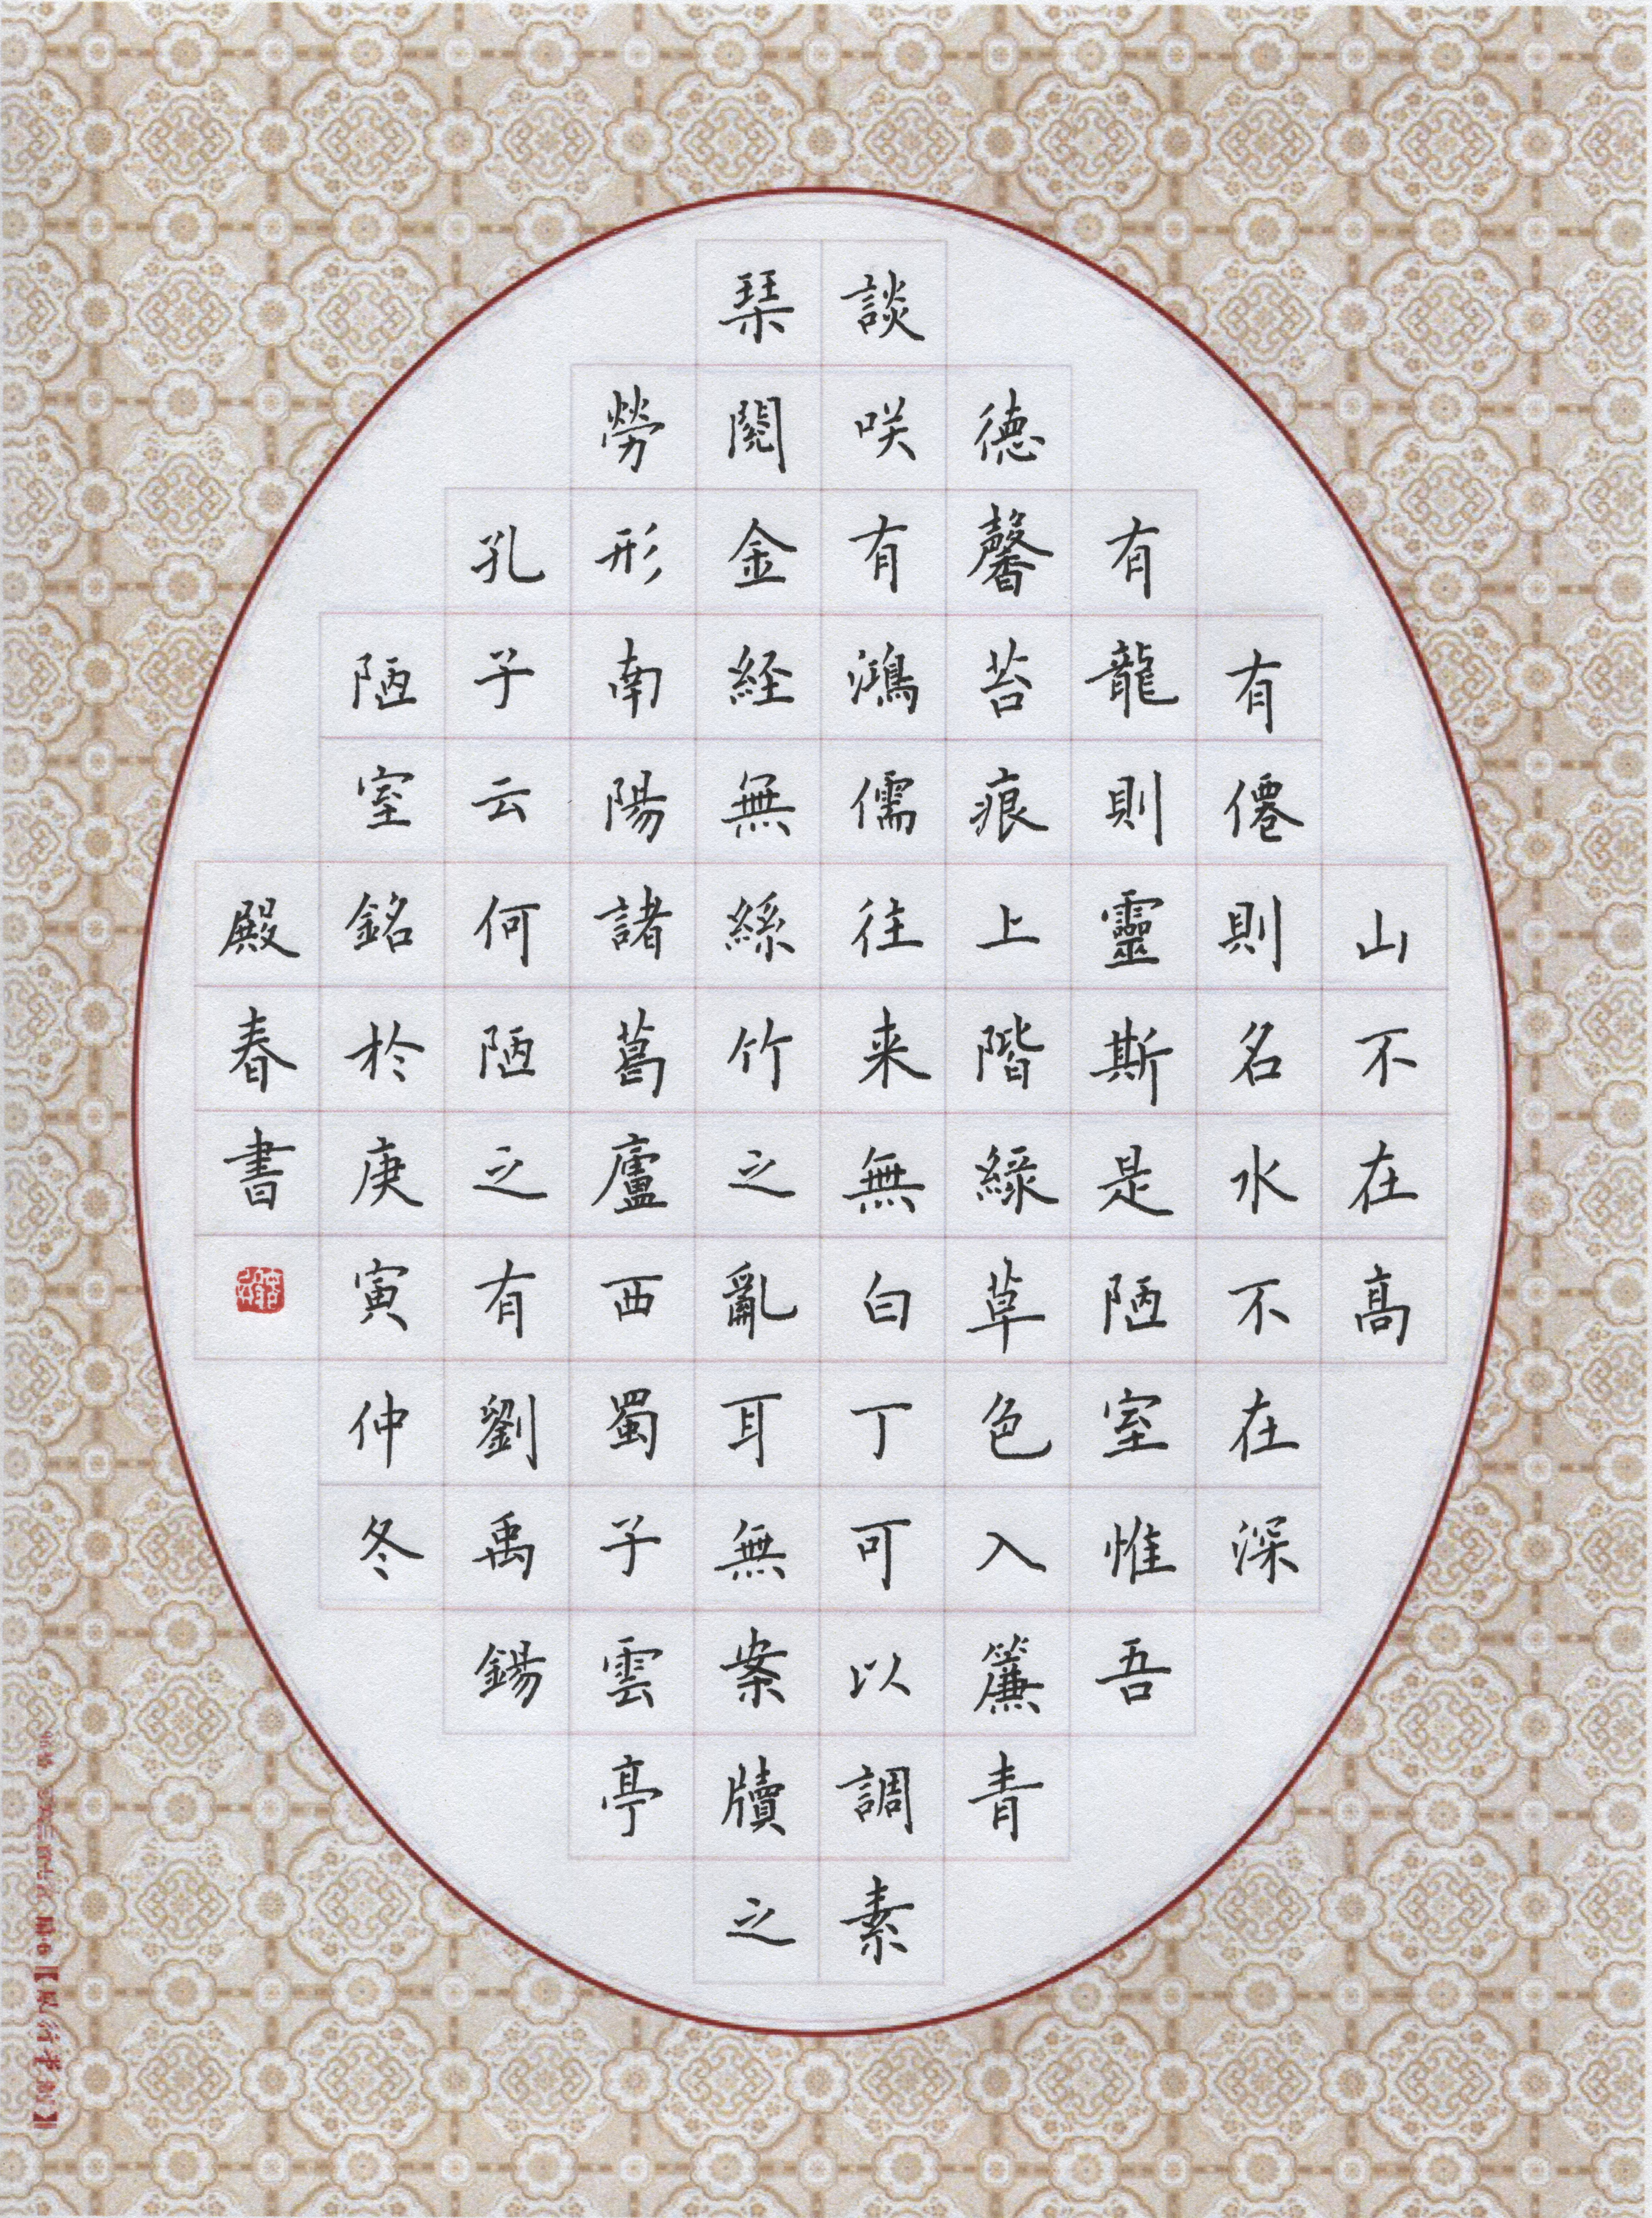 山不在高
有僊則名水不在深
有龍則靈斯是陋室惟吾
德馨苔痕上階緑草色入簾青
談咲有鴻儒往来無白丁可以調素
琹閲金経無絲竹之亂耳無案牘之
勞形南陽諸葛廬西蜀子雲亭
孔子云何陋之有劉禹錫
陋室銘於庚寅仲冬
殿春書